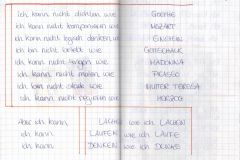 ich kann nicht dichten wie GOETHE
ich kann nicht komponieren wie MOZART
ich kann nicht logisch denken wie EINSTEIN
ich bin nicht beliebt wie GOTTSCHALK
ich kann nicht singen wie MADONNA
ich kann nicht malen wie PICASSO
ich bin nicht stark wie MUTTER TERESA
ich kann nicht regieren wie HERZOG
Aber ich kann LACHEN wie ich LACHE
ich kann LAUFEN wie ich LAUFE
ich kann DENKEN wie ich DENKE